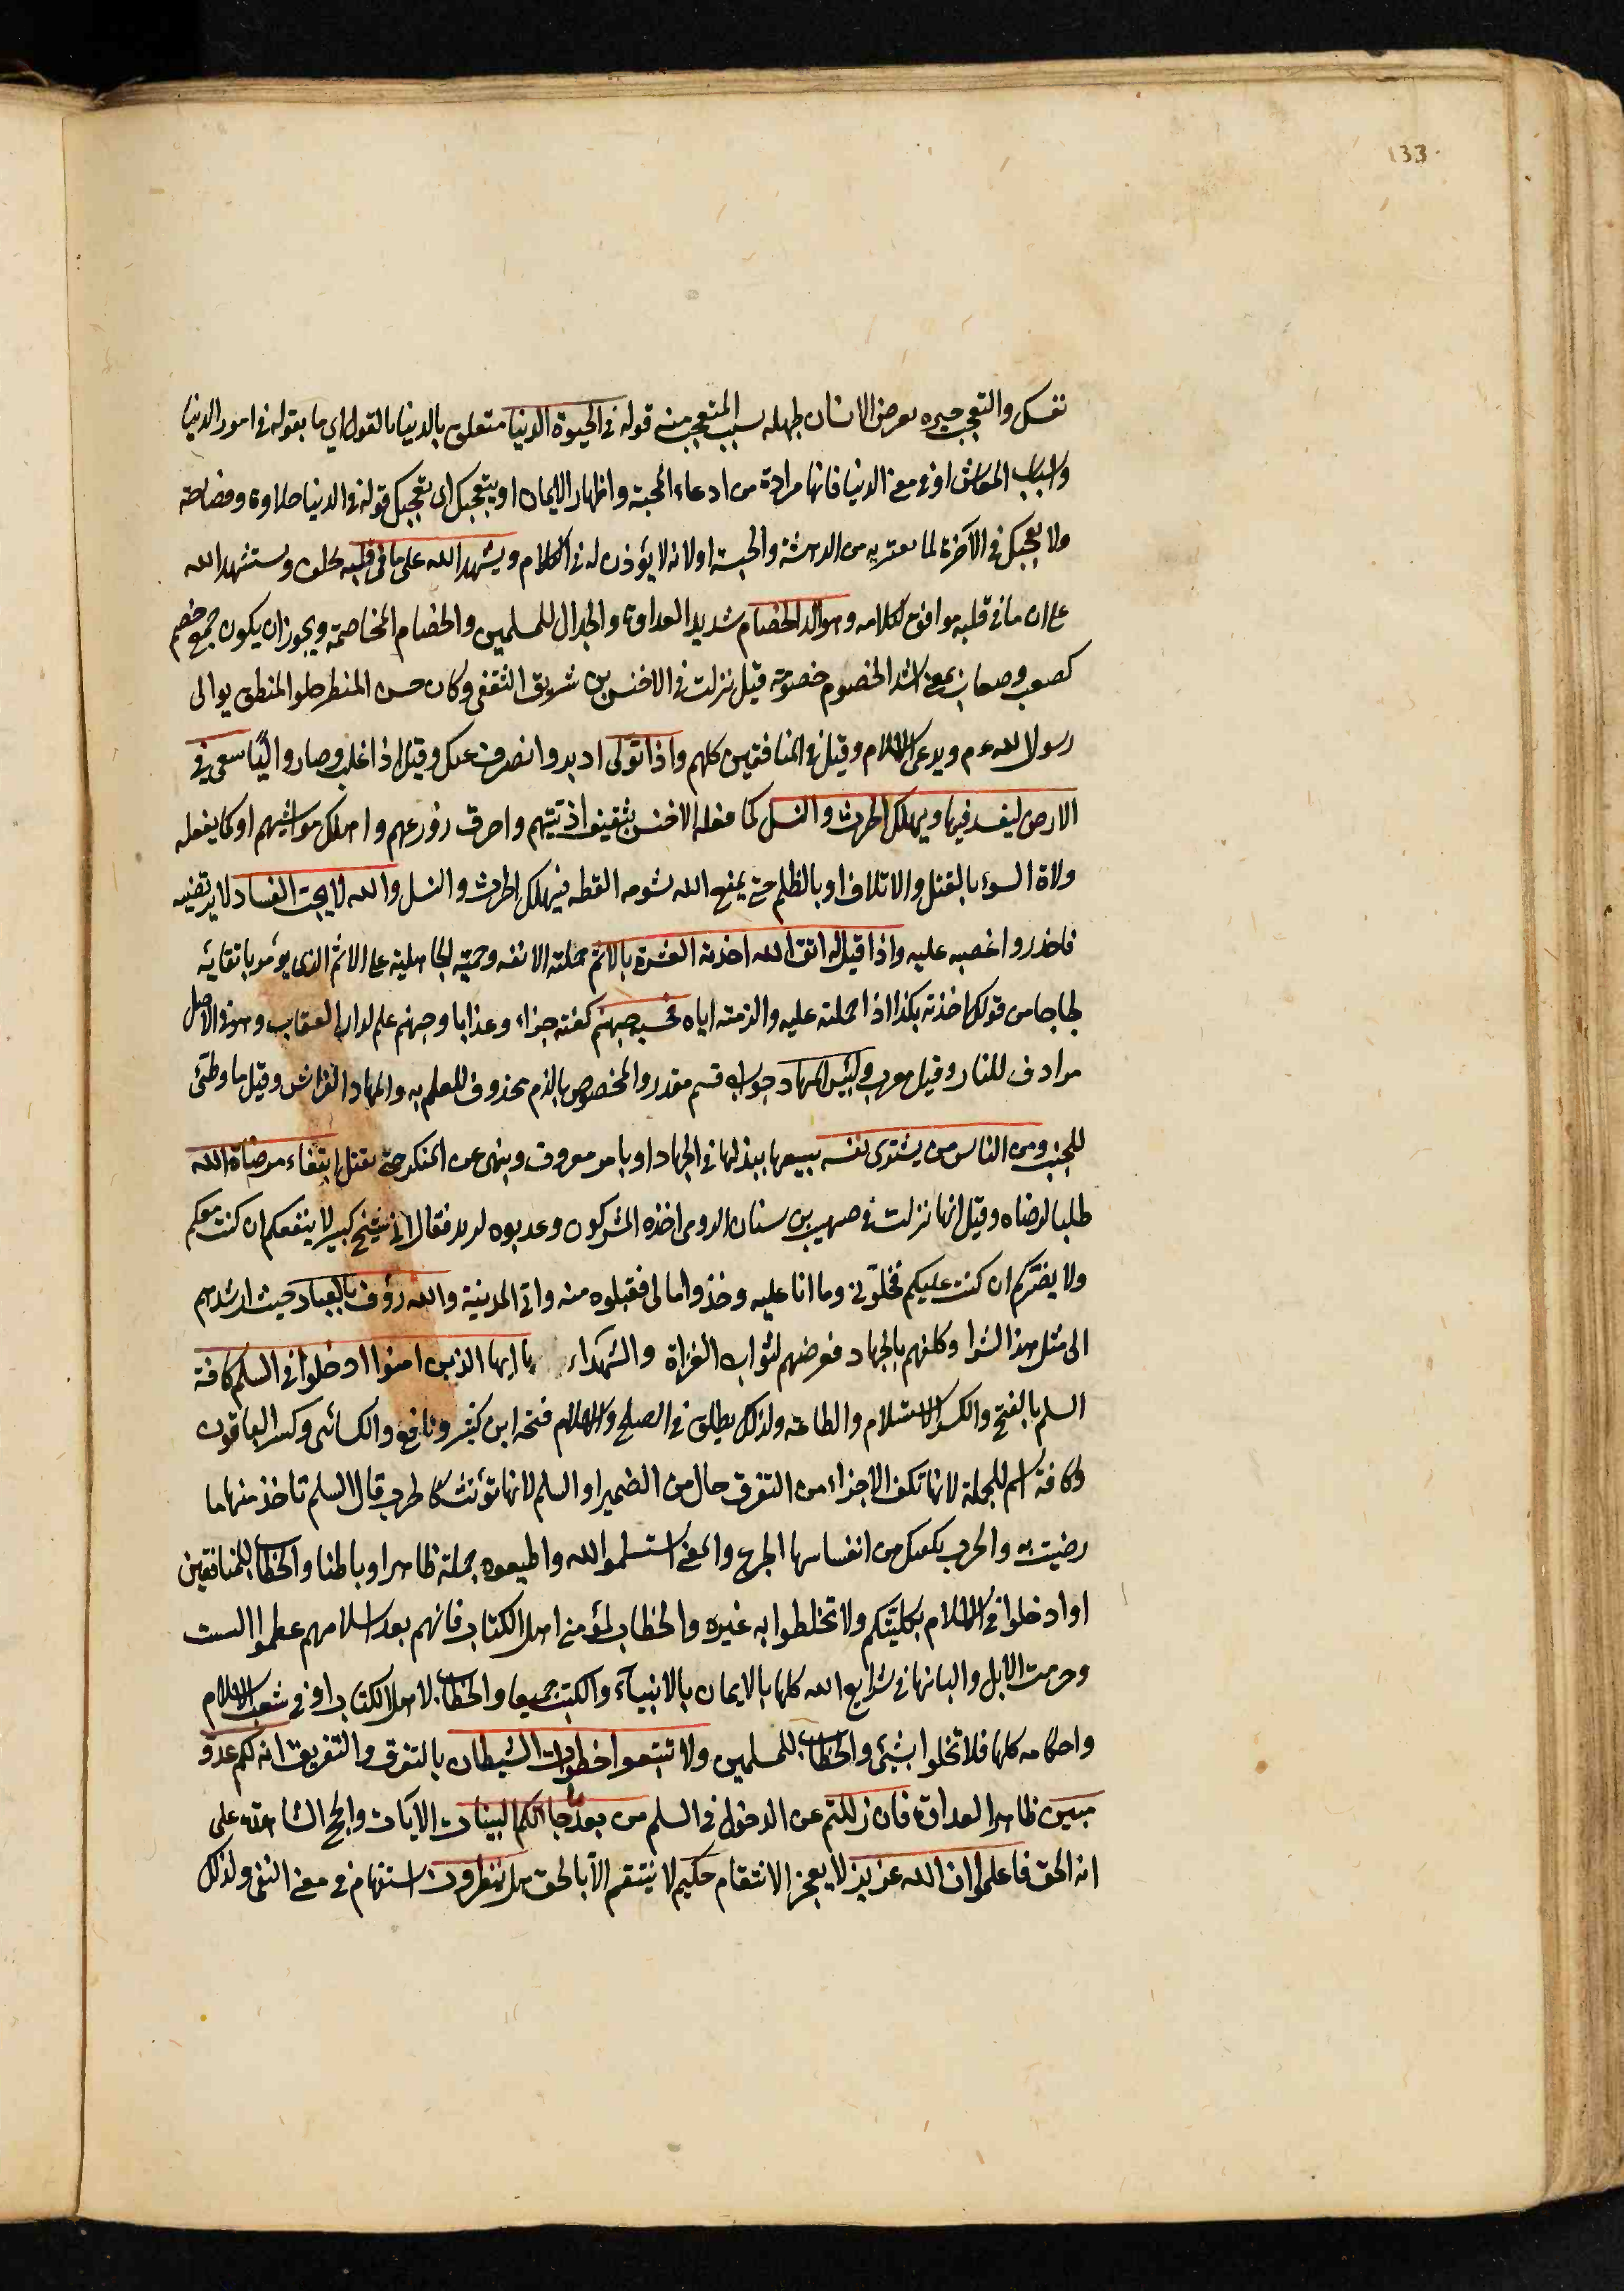 133
نفسك والتعجب حيرة تعرض الانسان لجهله بسبب المتعجب منه قوله في الحيوة الدنيا متعلق بالدنيا بالقول اي ما يقوله في امور الدنيا
واسباب المعاش او في معنى الدنيا فانها مرادة من ادعاء المحبة واظهار الايمان او بيعجبك اى يعجبك قوله في الدنيا حلاوة وفصاحة
ولا يعجبك في الآخرة لما يعتريه من الدهشة والحبسة او لانه لا يؤذن له في الكلام ويشهد الله على ما في قلبه يحلف ويستشهد الله
على ان ما في قلبه موافق لكلامه وهو الد الخصام شديد العداوة والجدال للمسلمين والخصام المخاصمة ويجوز ان يكون جمع خصم
كصعب وصعاب بمعنى اشد الخصوم خصومة قيل نزلت في الاخنس بن شريق الثقفي وكان حسن المنظر حلو المنطق يوالى
رسول الله عم ويدعى الاسلام وقيل في المنافقين كلهم واذا تولى ادبر وانصرف عنك وقيل اذا غلب وصار واليًا سعى في
الارض ليفسد فيها ويهلك الحرث والنسل كما فعله الاخنس بثقيف اذ بيتهم واحرق زروعهم واهلك مواشيهم او كما يفعله
ولاة السوء بالقتل والاتلاف او بالظلم حتى يمنع الله بشومه القطر فيهلك الحرث والنسل والله لا يحب الفساد لا يرتضيه
فاحذروا غضبه عليه واذا قيل له اتق الله اخذته العزة بالاثم حملته الانفه وحمية الجاهلية على الاثم الذى يؤمر باتقائه
لجاجا من قولك اخذته بكذا اذا حملته عليه والزمته اياه فحسبه جهنم كفته جزاء وعذابا وجهنم علم لدار العقاب وهو في الاصل
مرادف للنار وقيل معرب ولبئس المهاد جواب قسم مقدر والمخصوص بالذم محذوف للعلم به والمهاد الفراش وقيل ما وطئ
للجنب ومن الناس من يشترى نفسه يبيعها يبذلها في الجهاد او يامر بمعروف وينهى عن المنكر حتى يقتل ابتغاء مرضاة الله
طلبا لرضاه وقيل انها نزلت في صهيب بن سنان الرومى اخذه المشركون وعذبوه ليرتد فقال اني شيخ كبير لا ينفعكم ان كنت معكم
ولا يضركم ان كنت عليكم فخلوني وما انا عليه وخذوا مالى فقبلوه منه واتى المدينة والله رؤف بالعباد حيث ارشدهم
الى مثل هذا الشرا وكلفهم بالجهاد فعرضهم لثواب الغزاة والشهداء يا ايها الذين امنوا ادخلوا في السلم كافة
السلم بالفتح والكسر الاستسلام والطاعة ولذلك يطلق في الصلح والاسلام فتحه ابن كثير ونافع والكسائى وكسر الباقون
وكافة اسم للجملة لانها تكف الاجزاء من التفرق حال من الضمير او السلم لانها تؤنث كالحرب قال السلم تاخذ منها ما
رضيت به والحرب يكفيك من انفاسها الجرع والمعنى استسلموا لله واطيعوه جملة ظاهرا وباطنا والخطاب للمنافقين
او ادخلوا في الاسلام بكليتكم ولا تخلطوا به غيره والخطاب لمؤمني اهل الكتاب فانهم بعد اسلامهم عظموا السبت
وحرمت الابل والبانها في شرايع الله كلها بالايمان بالانبياء والكتب جميعا والخطاب لاهل الكتاب او في شعب الاسلام
واحكامه كلها فلا تخلوا بشئ والخطاب للمسلمين ولا تتبعوا خطوات الشيطان بالتفرق والتفريق انه لكم عدو
مبين ظاهر العداوة فان زللتم عن الدخول في السلم من بعد ما جائكم البينات الآيات والحجج الشاهدة على
انه الحق فاعلموا ان الله عزيز لا يعجز الانتقام حكيم لا ينتقم الا بالحق هل ينظرون استفهام في معنى النفى ولذلك